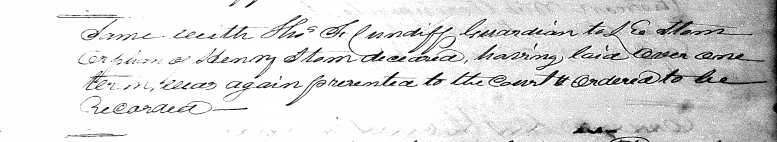 Same with Thos F Cundiff Guardian to L E Stom
orphan of Henry Stom deceased, having laid over one
term, was again presented to the Court & ordered to be
Recorded —